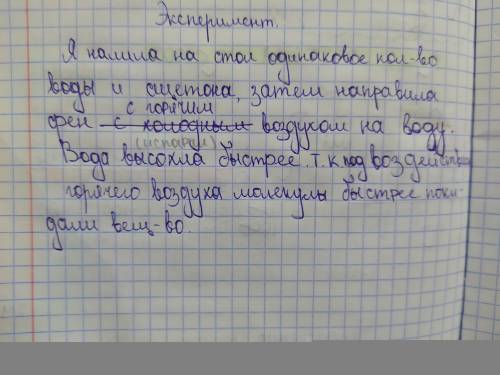 Эксперимент.
Я налила на стол одинаковое кол-во
воды и ацетона, затем направила
с горячим
фен с холодным воздухом на воду.
(испарен)
Вода высохла быстрее, т.к под воздейств
горячего воздуха молекулы быстрее поки-
дали вещ-во.